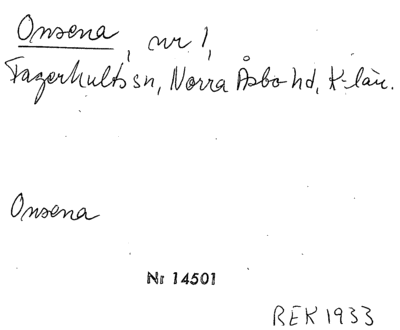 Onsena, nr 1,
Fagerhults sn, Norra Åsbo hd, K-län.
Onsena
Nr 14501
REK 1933